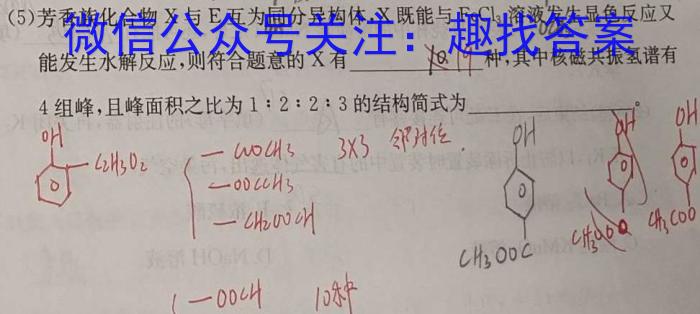 (5)芳香族化合物X与E互为同分异构体,X既能与FeCl₃溶液发生显色反应又
微信公众号关注:趣找答案
能发生水解反应,则符合题意的X有 19 种,其中核磁共振氢谱有
4组峰,且峰面积之比为1∶2∶2∶3的结构简式为 。
OH
—C2H3O2
—COOCH3 3X3 邻对位
—OOCCH3
—CH2OOCH
OH
CH3OOC
OH
CH3OOC
OH
CH3COO
—OOCH 10种
D.NaOH溶液